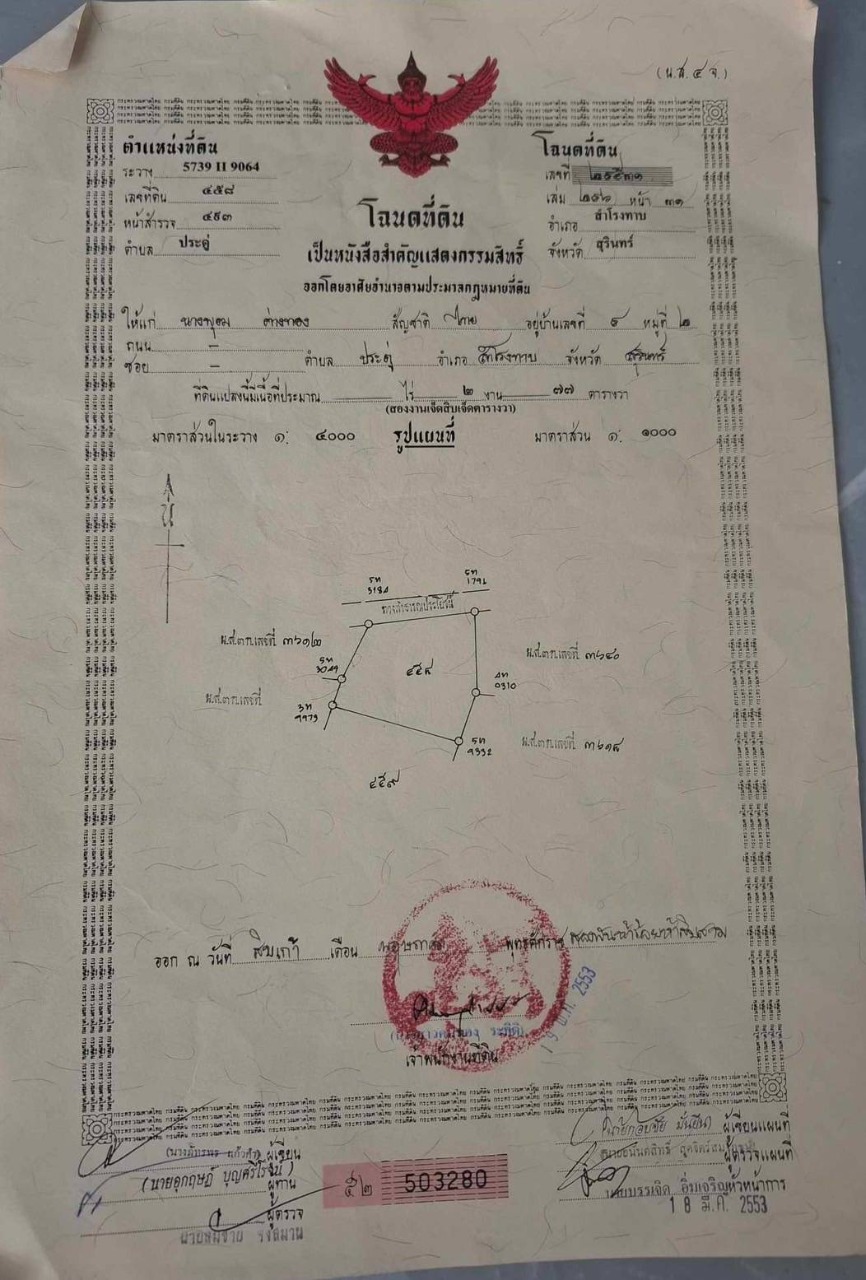 (น.ส. ๔ จ.)
ตำแหน่งที่ดิน
ระวาง 5739 II 9064
เลขที่ดิน ๔๕๘
หน้าสำรวจ ๔๙๓
ตำบล ประดู่
โฉนดที่ดิน
เลขที่ ๒๕๕๓๑
เล่ม ๒๕๖ หน้า ๓๑
อำเภอ สำโรงทาบ
จังหวัด สุรินทร์
โฉนดที่ดิน
เป็นหนังสือสำคัญแสดงกรรมสิทธิ์
ออกโดยอาศัยอำนาจตามประมวลกฎหมายที่ดิน
ให้แก่ สัญชาติ ไทย อยู่บ้านเลขที่ หมู่ที่ ๒
ถนน –
ซอย – ตำบล ประดู่ อำเภอ สำโรงทาบ จังหวัด สุรินทร์
ที่ดินแปลงนี้มีเนื้อที่ประมาณ ไร่ ๒ งาน ๗๗ ตารางวา
(สองงานเจ็ดสิบเจ็ดตารางวา)
มาตราส่วนในระวาง ๑: ๔๐๐๐ รูปแผนที่ มาตราส่วน ๑: ๑๐๐๐
น
5ท 3184
5ท 1791
ทางสาธารณประโยชน์
น.ส.๓ก.เลขที่
น.ส.๓ก.เลขที่ ๓๖๔๐
๔๕๘
น.ส.๓ก.เลขที่
0310
3ท 9973
5ท 9332
น.ส.๓ก.เลขที่
๔๕๙
ออก ณ วันที่ สิบเก้า เดือน พฤษภาคม พุทธศักราช สองพันห้าร้อยห้าสิบสาม
19 พ.ค. 2553
เจ้าพนักงานที่ดิน
ผู้เขียน
(นายอุกฤษฎ์ บุญศรีโรจน์) ผู้ทาน
ผู้ตรวจ
นายสมชาย
๕๒ 503280
ผู้เขียนแผนที่
ผู้ตรวจแผนที่
นายบรรเจิด อิ่มเจริญ หัวหน้าการ
18 มี.ค. 2553